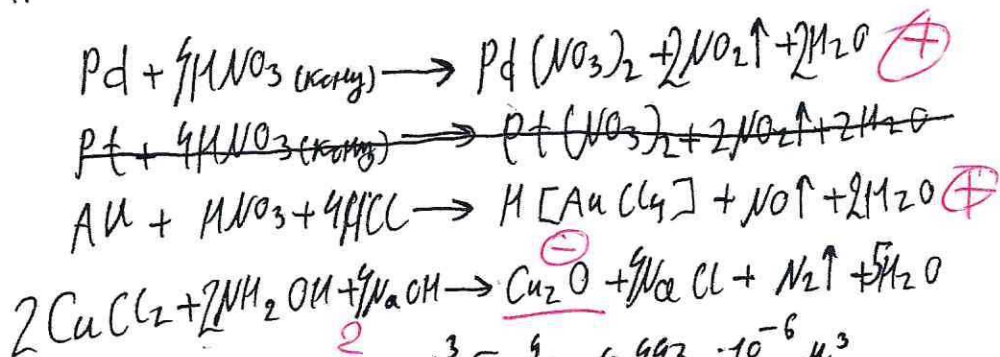 Pd + 4HNO₃ (конц) ⟶ Pd(NO₃)₂ + 2NO₂↑ + 2H₂O (+)
Pt + 4HNO₃ (конц) ⟶ Pt(NO₃)₂ + 2NO₂↑ + 2H₂O
Au + HNO₃ + 4HCl ⟶ H[AuCl₄] + NO↑ + 2H₂O (+)
(−)
2CuCl₂ + 2NH₂OH + 4NaOH ⟶ Cu₂O + 4NaCl + N₂↑ + 5H₂O
2